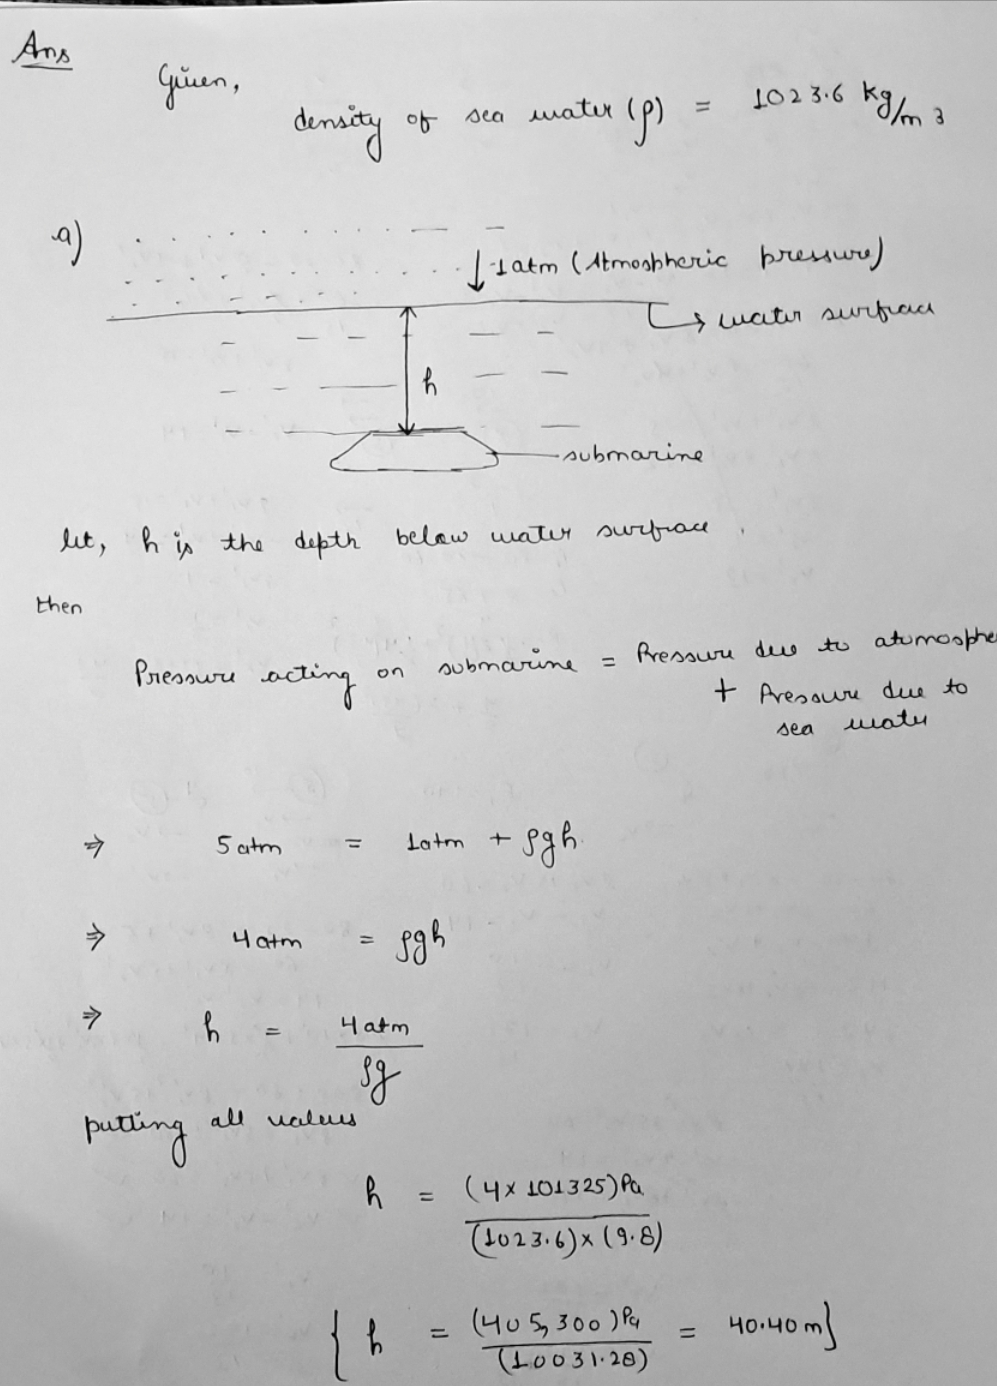 Ans
Given,
density of sea water (ρ) = 1023.6 kg/m3
a)
1atm (Atmospheric pressure)
water surface
h
submarine
let, h is the depth below water surface.
then
Pressure acting on submarine = Pressure due to atomosphe
+ Pressure due to
sea water
⇒ 5 atm = 1atm + ρgh
⇒ 4 atm = ρgh
⇒ h = 4 atm / ρg
putting all values
h = (4 x 101325) Pa / (1023.6) x (9.8)
{ h = (405,300) Pa / (10031.28) = 40.40 m }